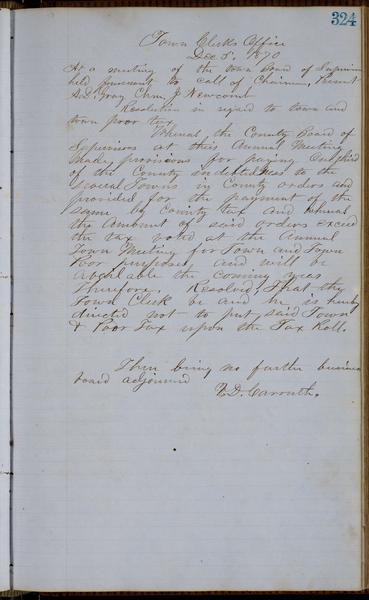 324
Town Clerks Office
Dec 5, 1870
At a meeting of the town Board of Supervisors
held pursuant to call of Chairman, Present
A.D. Gray Chm, J Newcomb
Resolution in regard to town and
town poor tax
Whereas the County Board of
Supervisors at their Annual Meeting
Made provisions for paying
of the County indebtedness to the
several Towns in County orders and
provided for the payment of the
same by County tax and whereas
the Amount of said orders exceed
the tax voted at the Annual
Town Meeting for Town and Town
Poor purposes, and will be
Available the coming year
Therefore, Resolved That the
Town Clerk be and he is hereby
directed not to put said Town
& Poor Tax upon the Tax Roll.
There being no further business
board adjourned
E.D. Carruth.